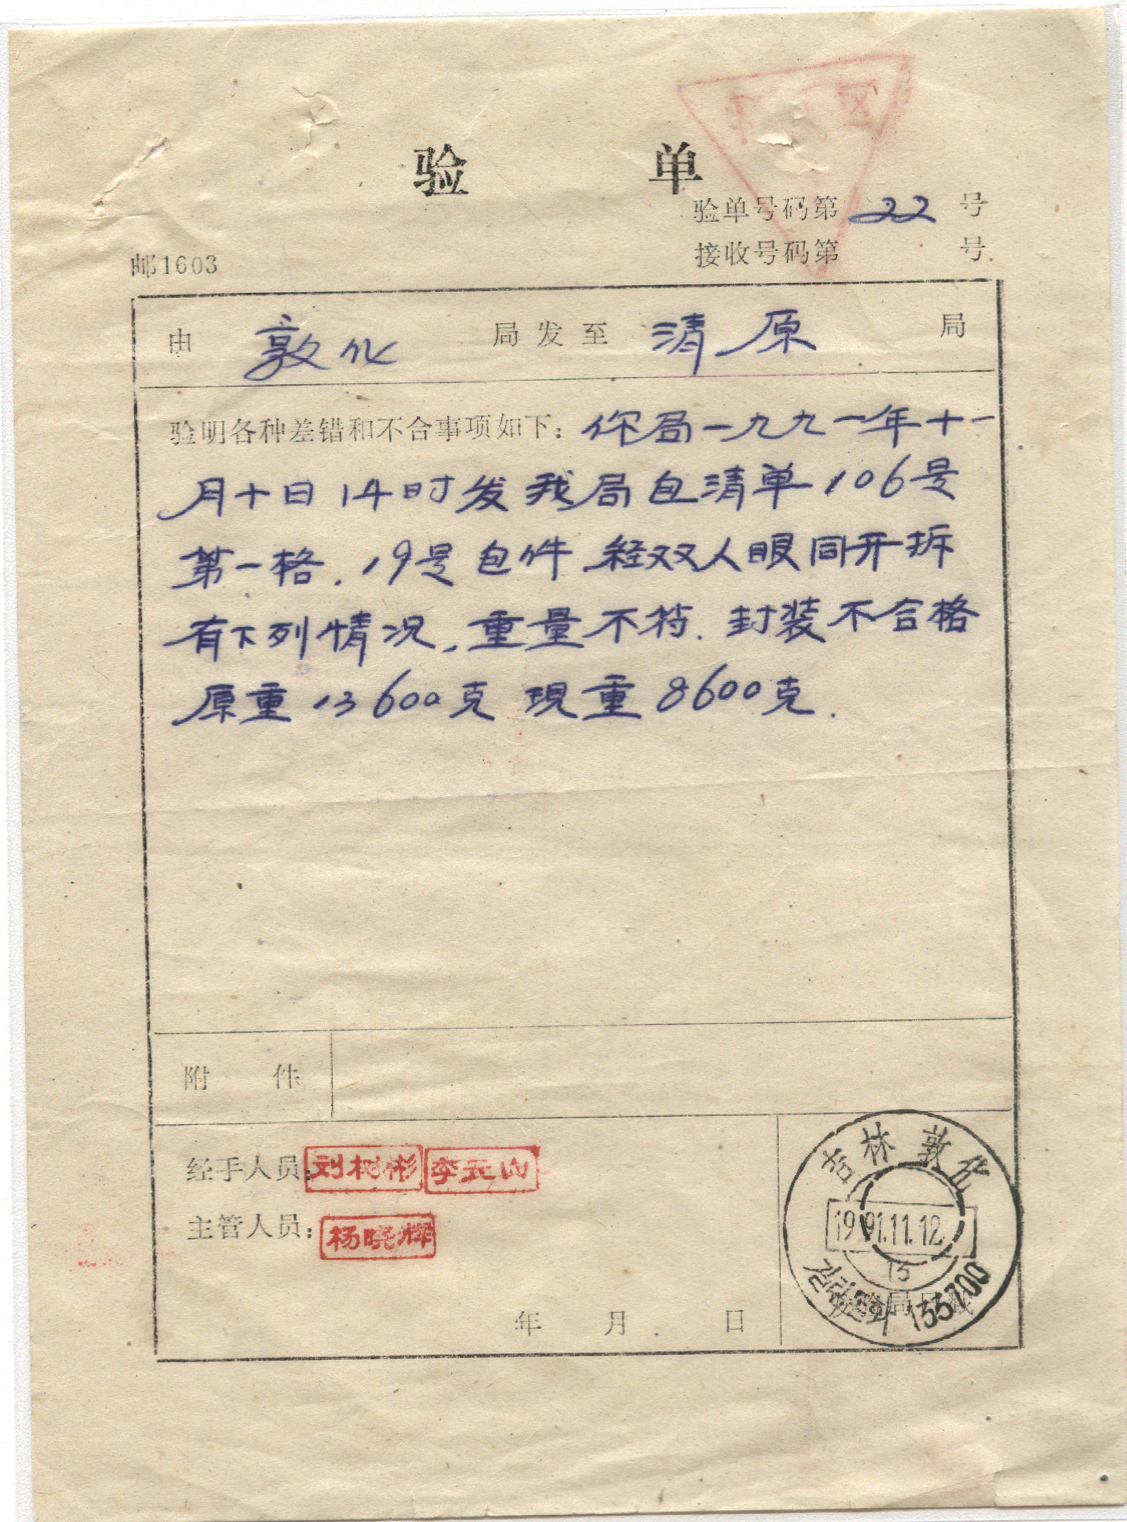 验 单
验单号码第 22 号
接收号码第 号.
邮1603
由 敦化 局发至 清原 局
验明各种差错和不合事项如下: 你局一九九一年十一
月十日14时发我局包清单106号
第一格.19号包件.经双人眼同开拆
有下列情况.重量不符.封装不合格
原重13600克 现重8600克.
附 件
经手人员: 刘树彬 李云山
主管人员: 杨晓辉
年 月 日
吉林 敦化
1991.11.12
13
길림돈화 133700